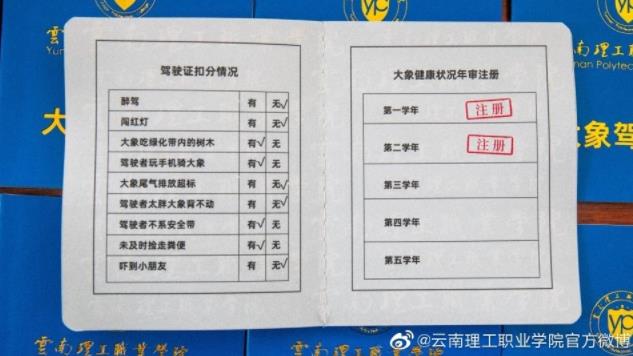 雲南理工職
Yun
yp
yp
雲南理工職
nan Polytec
大
大象驾
驾驶证扣分情况
醉驾 有 无√
闯红灯 有 无√
大象吃绿化带内的树木 有√ 无
驾驶者玩手机骑大象 有√ 无
大象尾气排放超标 有 无√
驾驶者太胖大象背不动 有 无√
驾驶者不系安全带 有√ 无
未及时捡走粪便 有√ 无
吓到小朋友 有 无√
大象健康状况年审注册
第一学年 注册
第二学年 注册
第三学年
第四学年
第五学年
雲南理工職業學院
@云南理工职业学院官方微博